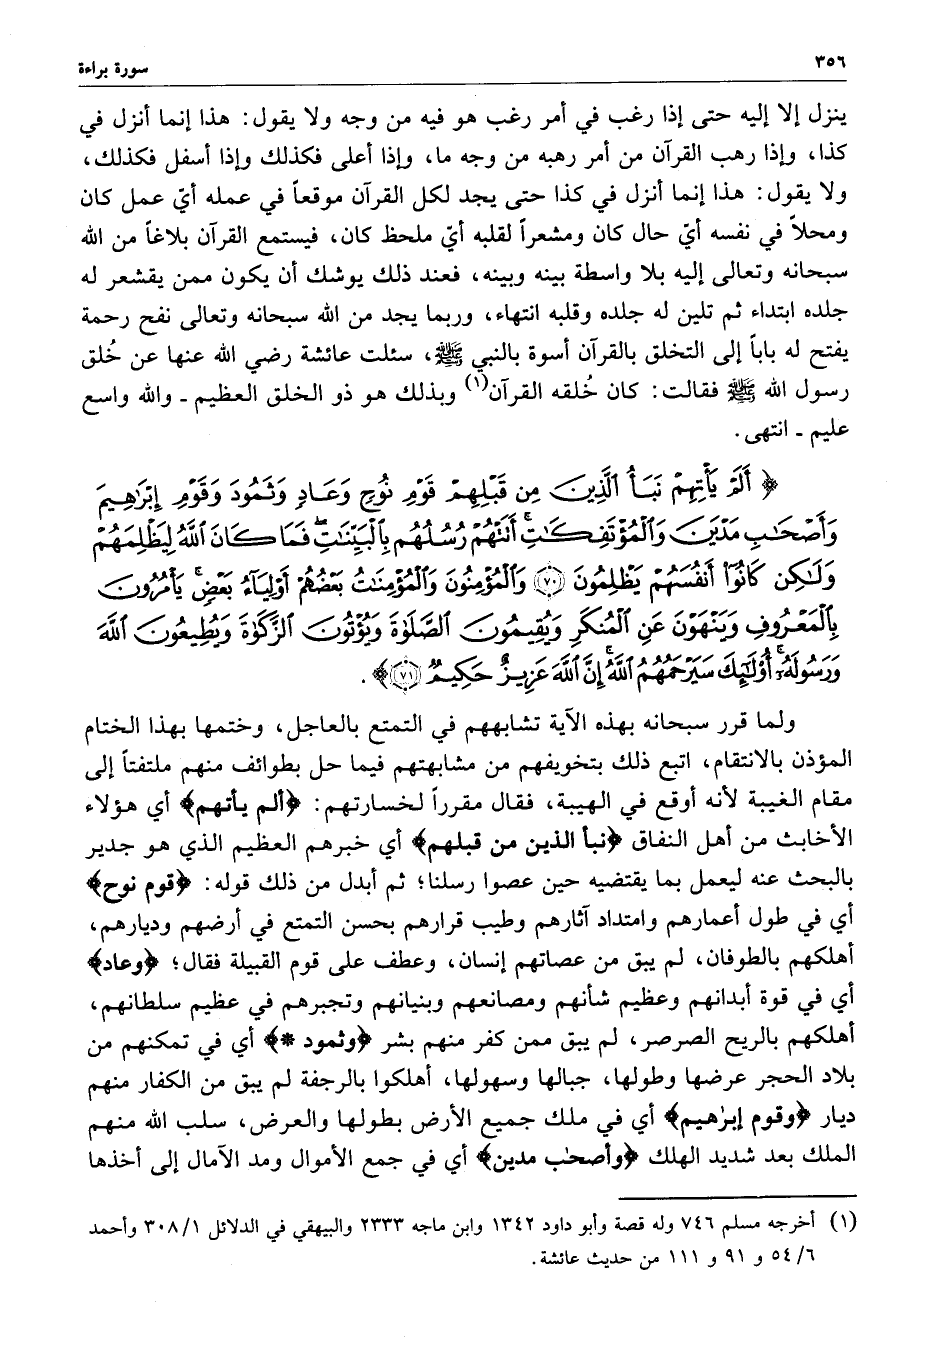 ٣٥٦ سورة براءة
ينزل إلا إليه حتى إذا رغب في أمر رغب هو فيه من وجه ولا يقول: هذا إنما أنزل في
كذا، وإذا رهب القرآن من أمر رهبه من وجه ما، وإذا أعلى فكذلك وإذا أسفل فكذلك،
ولا يقول: هذا إنما أنزل في كذا حتى يجد لكل القرآن موقعاً في عمله أيّ عمل كان
ومحلاً في نفسه أيّ حال كان ومشعراً لقلبه أيّ ملحظ كان، فيستمع القرآن بلاغاً من الله
سبحانه وتعالى إليه بلا واسطة بينه وبينه، فعند ذلك يوشك أن يكون ممن يقشعر له
جلده ابتداء ثم تلين له جلده وقلبه انتهاء، وربما يجد من الله سبحانه وتعالى نفح رحمة
يفتح له باباً إلى التخلق بالقرآن أسوة بالنبي ﷺ، سئلت عائشة رضي الله عنها عن خُلق
رسول الله ﷺ فقالت: كان خُلقه القرآن(١) وبذلك هو ذو الخلق العظيم ـ والله واسع
عليم ـ انتهى.
﴿ أَلَمْ يَأْتِهِمْ نَبَأُ ٱلَّذِينَ مِن قَبْلِهِمْ قَوْمِ نُوحٍ وَعَادٍ وَثَمُودَ وَقَوْمِ إِبْرَٰهِيمَ
وَأَصْحَٰبِ مَدْيَنَ وَٱلْمُؤْتَفِكَٰتِ ۚ أَتَتْهُمْ رُسُلُهُم بِٱلْبَيِّنَٰتِ ۖ فَمَا كَانَ ٱللَّهُ لِيَظْلِمَهُمْ
وَلَٰكِن كَانُوٓا۟ أَنفُسَهُمْ يَظْلِمُونَ ﴿٧٠﴾ وَٱلْمُؤْمِنُونَ وَٱلْمُؤْمِنَٰتُ بَعْضُهُمْ أَوْلِيَآءُ بَعْضٍ ۚ يَأْمُرُونَ
بِٱلْمَعْرُوفِ وَيَنْهَوْنَ عَنِ ٱلْمُنكَرِ وَيُقِيمُونَ ٱلصَّلَوٰةَ وَيُؤْتُونَ ٱلزَّكَوٰةَ وَيُطِيعُونَ ٱللَّهَ
وَرَسُولَهُۥٓ ۚ أُو۟لَٰٓئِكَ سَيَرْحَمُهُمُ ٱللَّهُ ۗ إِنَّ ٱللَّهَ عَزِيزٌ حَكِيمٌ ﴿٧١﴾ ﴾.
ولما قرر سبحانه بهذه الآية تشابههم في التمتع بالعاجل، وختمها بهذا الختام
المؤذن بالانتقام، اتبع ذلك بتخويفهم من مشابهتهم فيما حل بطوائف منهم ملتفتاً إلى
مقام الغيبة لأنه أوقع في الهيبة، فقال مقرراً لخسارتهم: ﴿ألم يأتهم﴾ أي هؤلاء
الأخابث من أهل النفاق ﴿نبأ الذين من قبلهم﴾ أي خبرهم العظيم الذي هو جدير
بالبحث عنه ليعمل بما يقتضيه حين عصوا رسلنا؛ ثم أبدل من ذلك قوله: ﴿قوم نوح﴾
أي في طول أعمارهم وامتداد آثارهم وطيب قرارهم بحسن التمتع في أرضهم وديارهم،
أهلكهم بالطوفان، لم يبق من عصاتهم إنسان، وعطف على قوم القبيلة فقال؛ ﴿وعاد﴾
أي في قوة أبدانهم وعظيم شأنهم ومصانعهم وبنيانهم وتجبرهم في عظيم سلطانهم،
أهلكهم بالريح الصرصر، لم يبق ممن كفر منهم بشر ﴿وثمود *﴾ أي في تمكنهم من
بلاد الحجر عرضها وطولها، جبالها وسهولها، أهلكوا بالرجفة لم يبق من الكفار منهم
ديار ﴿وقوم إبرٰهيم﴾ أي في ملك جميع الأرض بطولها والعرض، سلب الله منهم
الملك بعد شديد الهلك ﴿وأصحٰب مدين﴾ أي في جمع الأموال ومد الآمال إلى أخذها
(١) أخرجه مسلم ٧٤٦ وله قصة وأبو داود ١٣٤٢ وابن ماجه ٢٣٣٣ والبيهقي في الدلائل ٣٠٨/١ وأحمد
٥٤/٦ و ٩١ و ١١١ من حديث عائشة.